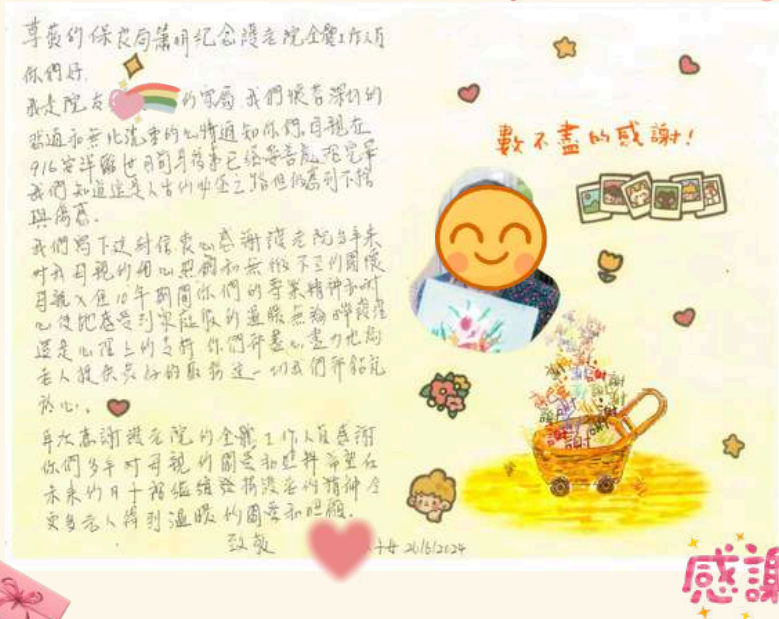 尊敬的保良局蕭明紀念護老院全體工作人員
你們好,
我是院友 的家屬 我們懷著深切的
悲痛和無比沉重的心情通知你們母親在
9/6安詳離世
我們知道這是人生的必經之路但仍感到不捨
與傷感.
我們寫下這封信衷心感謝護老院多年來
對我母親的細心照顧和無微不至的關懷
母親入住10年期間你們的專業精神和耐
心使她感受到家庭般的溫暖無論 護理
還是心理上的支持 你們都盡心盡力地為
老人提供良好的服務這一切我們都銘記
於心。
再次感謝護老院的全體工作人員感謝
你們多年對母親的關愛和照料希望在
未來的日子裡繼續發揚護老的精神令
更多老人得到溫暖的關愛和照顧.
致敬
20/6/2024
數不盡的感謝!
謝
謝謝
感謝